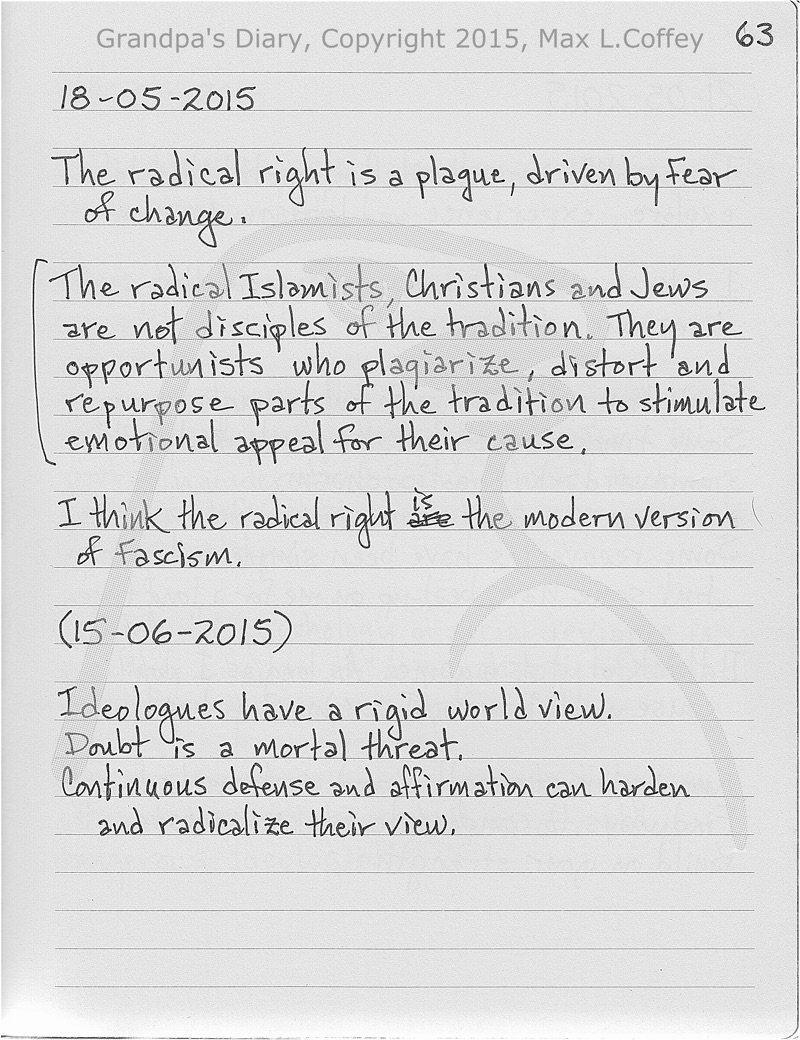 Grandpa's Diary, Copyright 2015, Max L.Coffey
63
18-05-2015
The radical right is a plague, driven by fear
of change.
The radical Islamists, Christians and Jews
are not disciples of the tradition. They are
opportunists who plagiarize, distort and
repurpose parts of the tradition to stimulate
emotional appeal for their cause.
I think the radical right is are the modern version
of fascism.
(15-06-2015)
Ideologues have a rigid world view.
Doubt is a mortal threat.
Continuous defense and affirmation can harden
and radicalize their view.